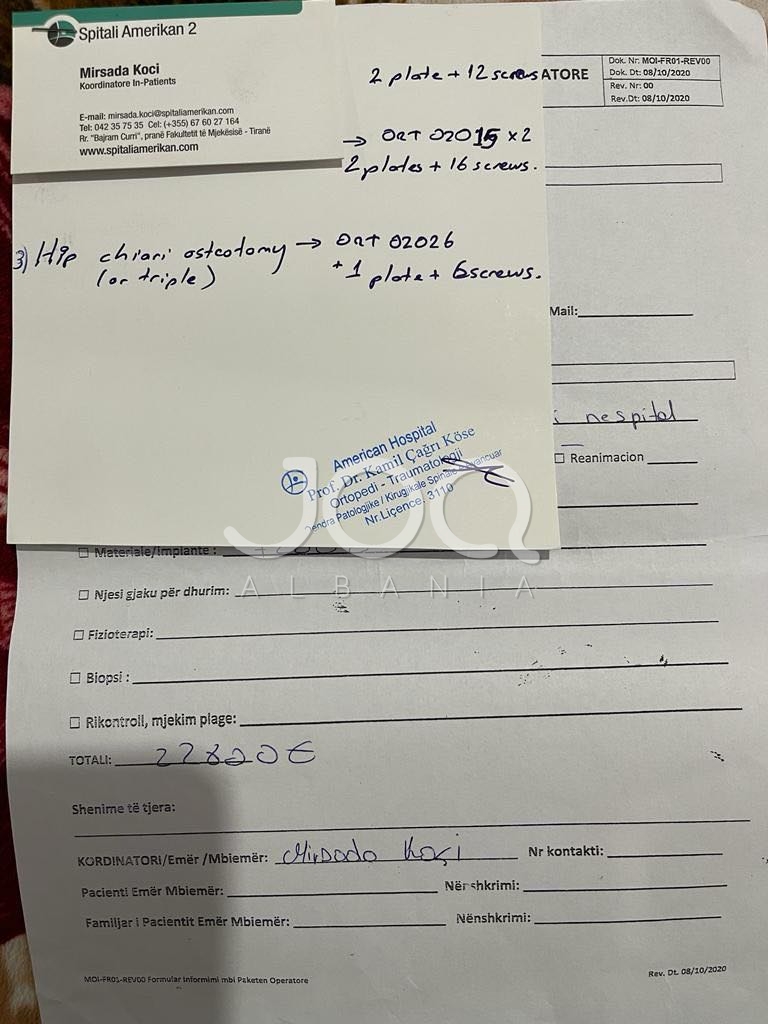 Spitali Amerikan 2
Mirsada Koci
Koordinatore In-Patients
E-mail: mirsada.koci@spitaliamerikan.com
Tel: 042 35 75 35 Cel: (+355) 67 60 27 164
Rr. "Bajram Curri", pranë Fakultetit të Mjekësisë - Tiranë
www.spitaliamerikan.com
ATORE
Dok. Nr: MOI-FR01-REV00
Dok. Dt: 08/10/2020
Rev. Nr: 00
Rev.Dt: 08/10/2020
2 plate + 12 screws
→ ORT 02015 x2
2 plates + 16 screws.
3) Hip chiari osteotomy → ORT 02026
(or triple) + 1 plate + 6 screws.
Mail:
i nespital
□ Reanimacion
American Hospital
Prof. Dr. Kamil Çağrı Köse
Ortopedi - Traumatologji
Patologjike / Kirugjikale Spinale
Nr.Liçence. 3110
JOQ
ALBANIA
□ Materiale/implante :
□ Njesi gjaku për dhurim:
□ Fizioterapi:
□ Biopsi :
□ Rikontroll, mjekim plage:
TOTALI: 27820€
Shenime të tjera:
KORDINATORI/Emër /Mbiemër: Mirsada Koçi Nr kontakti:
Pacienti Emër Mbiemër: Nënshkrimi:
Familjar i Pacientit Emër Mbiemër: Nënshkrimi:
MOI-FR01-REV00 Formular Informimi mbi Paketen Operatore
Rev. Dt. 08/10/2020